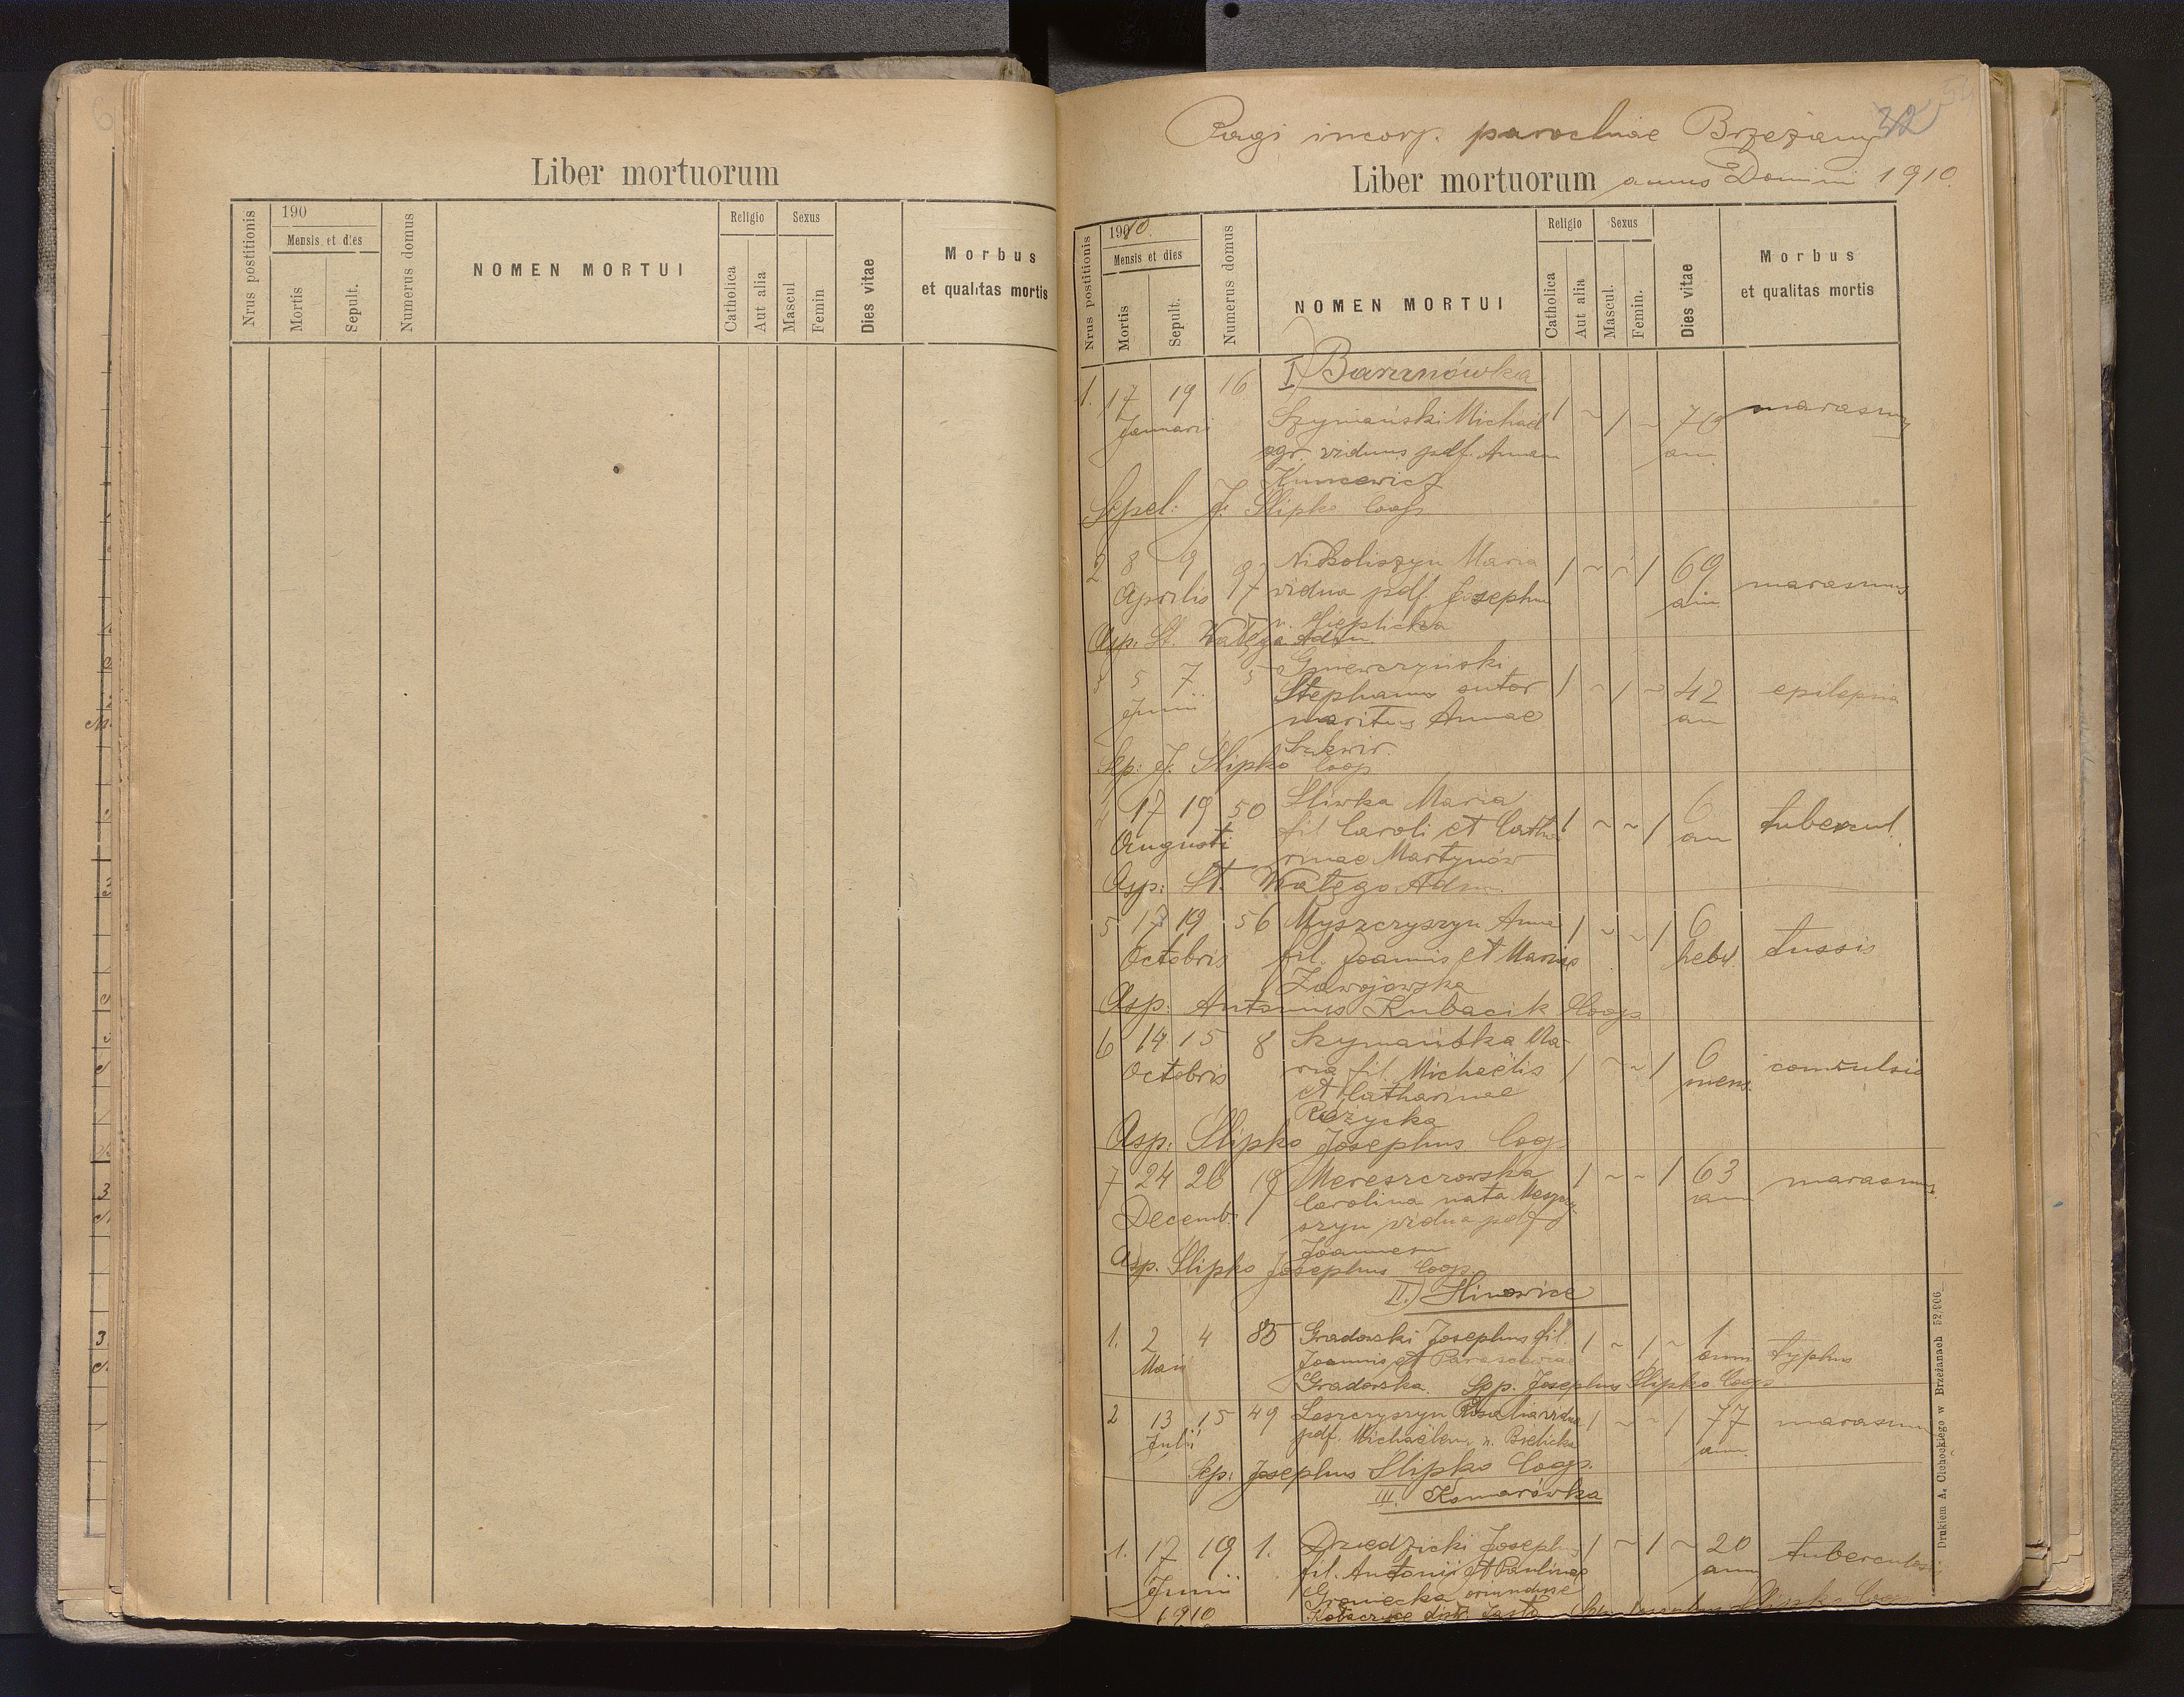 Liber mortuorum
Nrus postitionis
190
Mensis et dies
Mortis
Sepult.
Numerus domus
NOMEN MORTUI
Religio
Catholica
Aut alia
Sexus
Mascul
Femin
Dies vitae
Morbus
et qualitas mortis
Pagi incorp. parochiae Brzeżany
32
Liber mortuorum annus Domini 1910.
Nrus postitionis
1910.
Mensis et dies
Mortis
Sepult.
Numerus domus
NOMEN MORTUI
Religio
Catholica
Aut alia
Sexus
Mascul.
Femin.
Dies vitae
Morbus
et qualitas mortis
I) Baranówka
1. 17 19 16 Szymański Michael 1 ~ 1 ~ 70 marasmus
Januarii agr. viduus pdf. Annam an.
Kuncewicz
Sepel: J. Slipko Coop
2 8 9 97 Nikoliszyn Maria 1 ~ ~ 1 69 marasmus
Aprilis vidua pdf. Josephum an
n.
Asp. St. Wałęga Adm.
3 5 7 5 Gniewczyński
Junii Stephanus sutor 1 ~ 1 ~ 42 epilepsia
maritus Annae an
Sep: J. Slipko Coop
4 17 19 50 Sliwka Maria 1 ~ ~ 1 6 tubercul.
Augusti fil Caroli et Catha an
rinae Martynów
Asp: St. Wałęga Adm.
5 17 19 56 Myszczyszyn Anna 1 ~ ~ 1 6 tussis
Octobris fil. Joannis et Mariae hebd.
Zawojowska
Asp: Antonius Kubacik Coop
6 14 15 8 Szymańska Ma-
Octobris ria fil. Michaelis 1 ~ 1 6 convulsio
et Catharinae mens.
Różycka
Asp: Slipko Josephus Coop
7 24 26 19 Mereszczowska 1 ~ ~ 1 63 marasmus
Decemb. Carolina nata ann
szyn vidua pdf
Joannem
Asp. Slipko Josephus Coop.
II.) Hinowice
1. 2 4 85 Gradowski Josephus fil. 1 ~ 1 ~ 1 typhus
Maii Joannis et Parascewiae anni
Gradowska. Sep. Josephus Slipko Coop
2 13 15 49 Leszczyszyn Rosalia vidua 1 ~ ~ 1 77 marasmus
Julii pdf. Michaelem, n. Bielicka ann.
Sep: Josephus Slipko Coop.
III. Komarówka
1. 17 19 1. Dziedzicki Josephus 1 ~ 1 ~ 20 tuberculosis
Junii fil. Antonii et Paulinae ann
1910 oriundus e
Kołaczyce distr. Jasło Sep. Josephus Slipko Coop
Drukiem A. Cichockiego w Brzeżanach 52/906